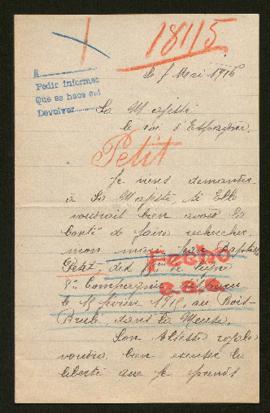 18115
Le 7 Mai 1916
A
Pedir informes
Que se hace así
Devolver
Sa Majesté
le roi d'Espagne
Petit
Je viens demander
à Sa Majesté, si Elle
voudrait bien avoir la
bonté de faire rechercher
mon mari Jean Baptiste
Petit, du de ligne
8e Compagnie
Fecho
le février 1915, au Bois
Brulé, dans la Meuse.
Son Altesse royale
voudra bien excuser la
liberté que je prends